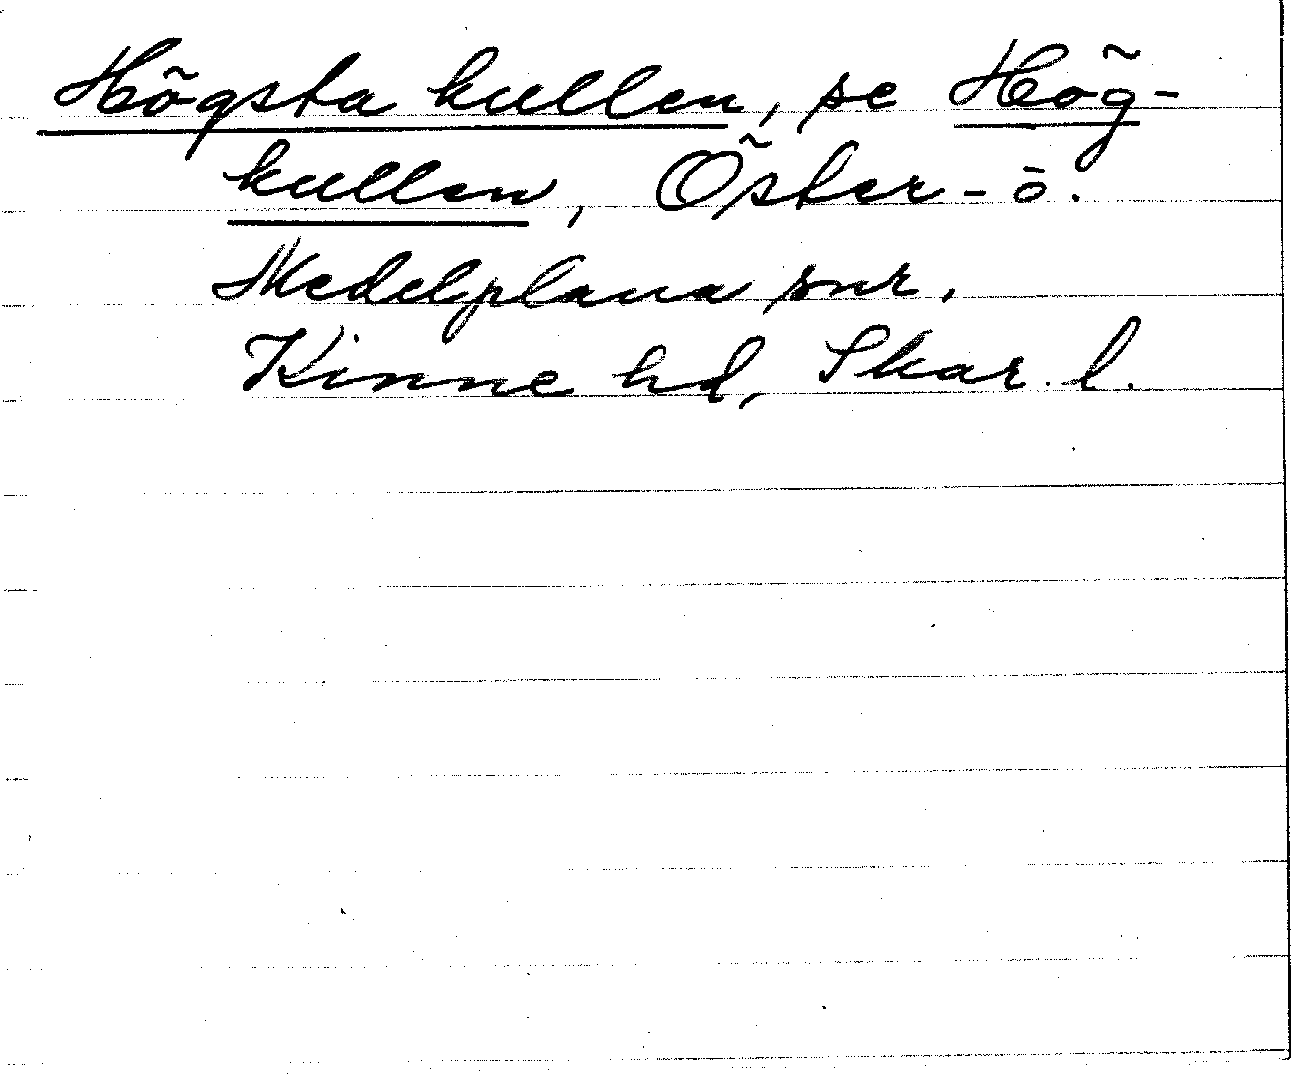 Högsta kullen, se Hög-
kullen, Öster- o.
Medelplana snr.
Kinne hd, Skar. l.